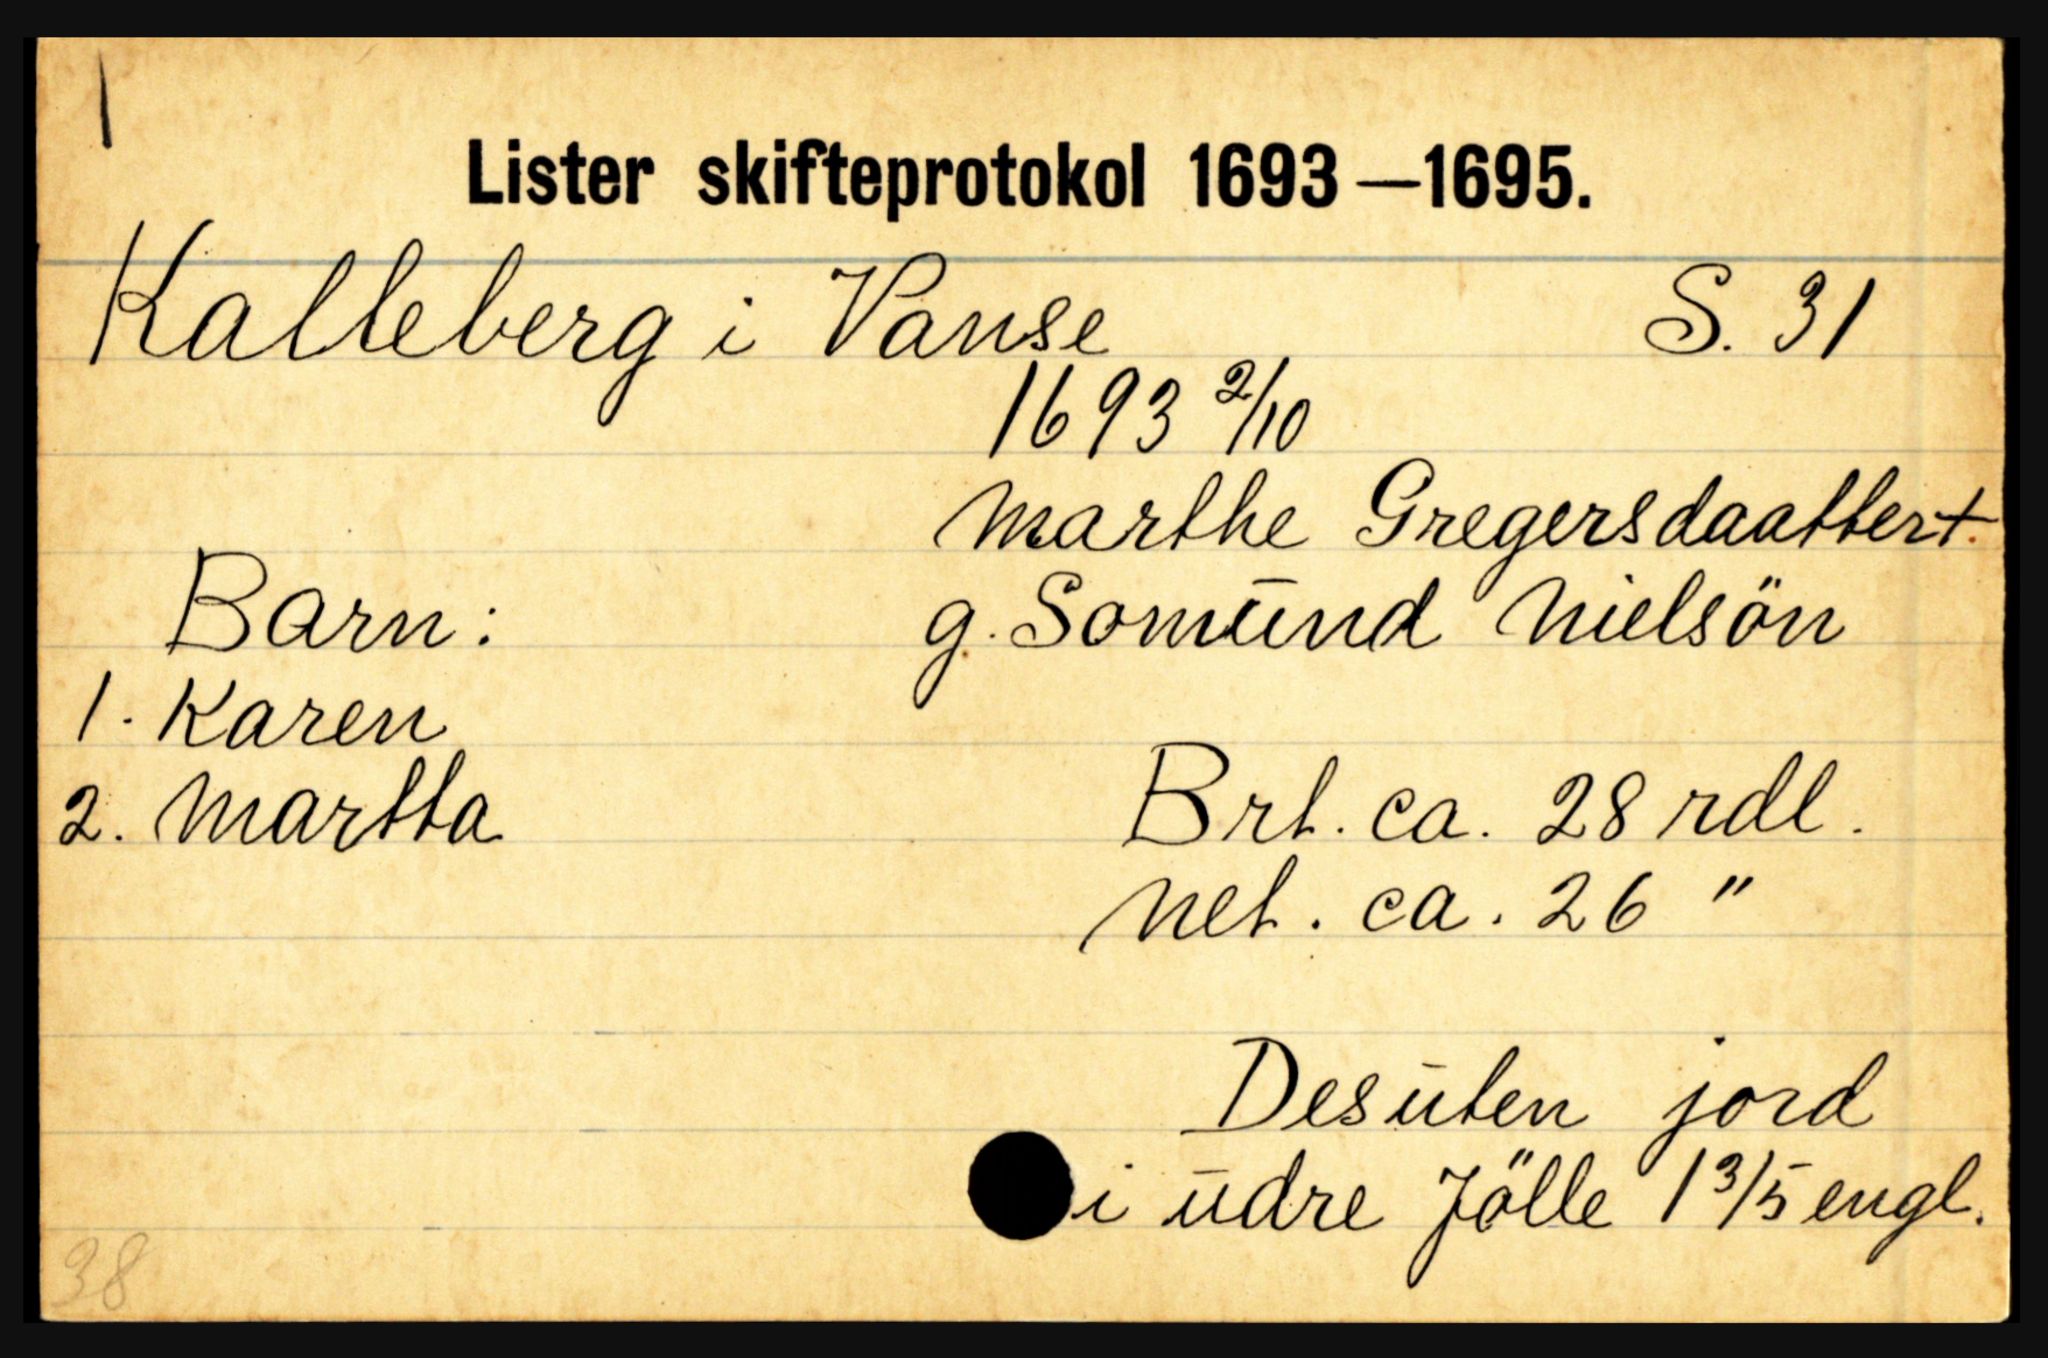 1
Lister skifteprotokol 1693—1695.
Kalleberg i Vanse S. 31
1693 2/10
Marthe Gregersdaatter †.
Barn: g. Somund Nielsön
1. Karen
2. Martta Brt. ca. 28 rdl.
Net. ca. 26 "
Desuten jord
i udre Jölle 1 3/5 engl.
38